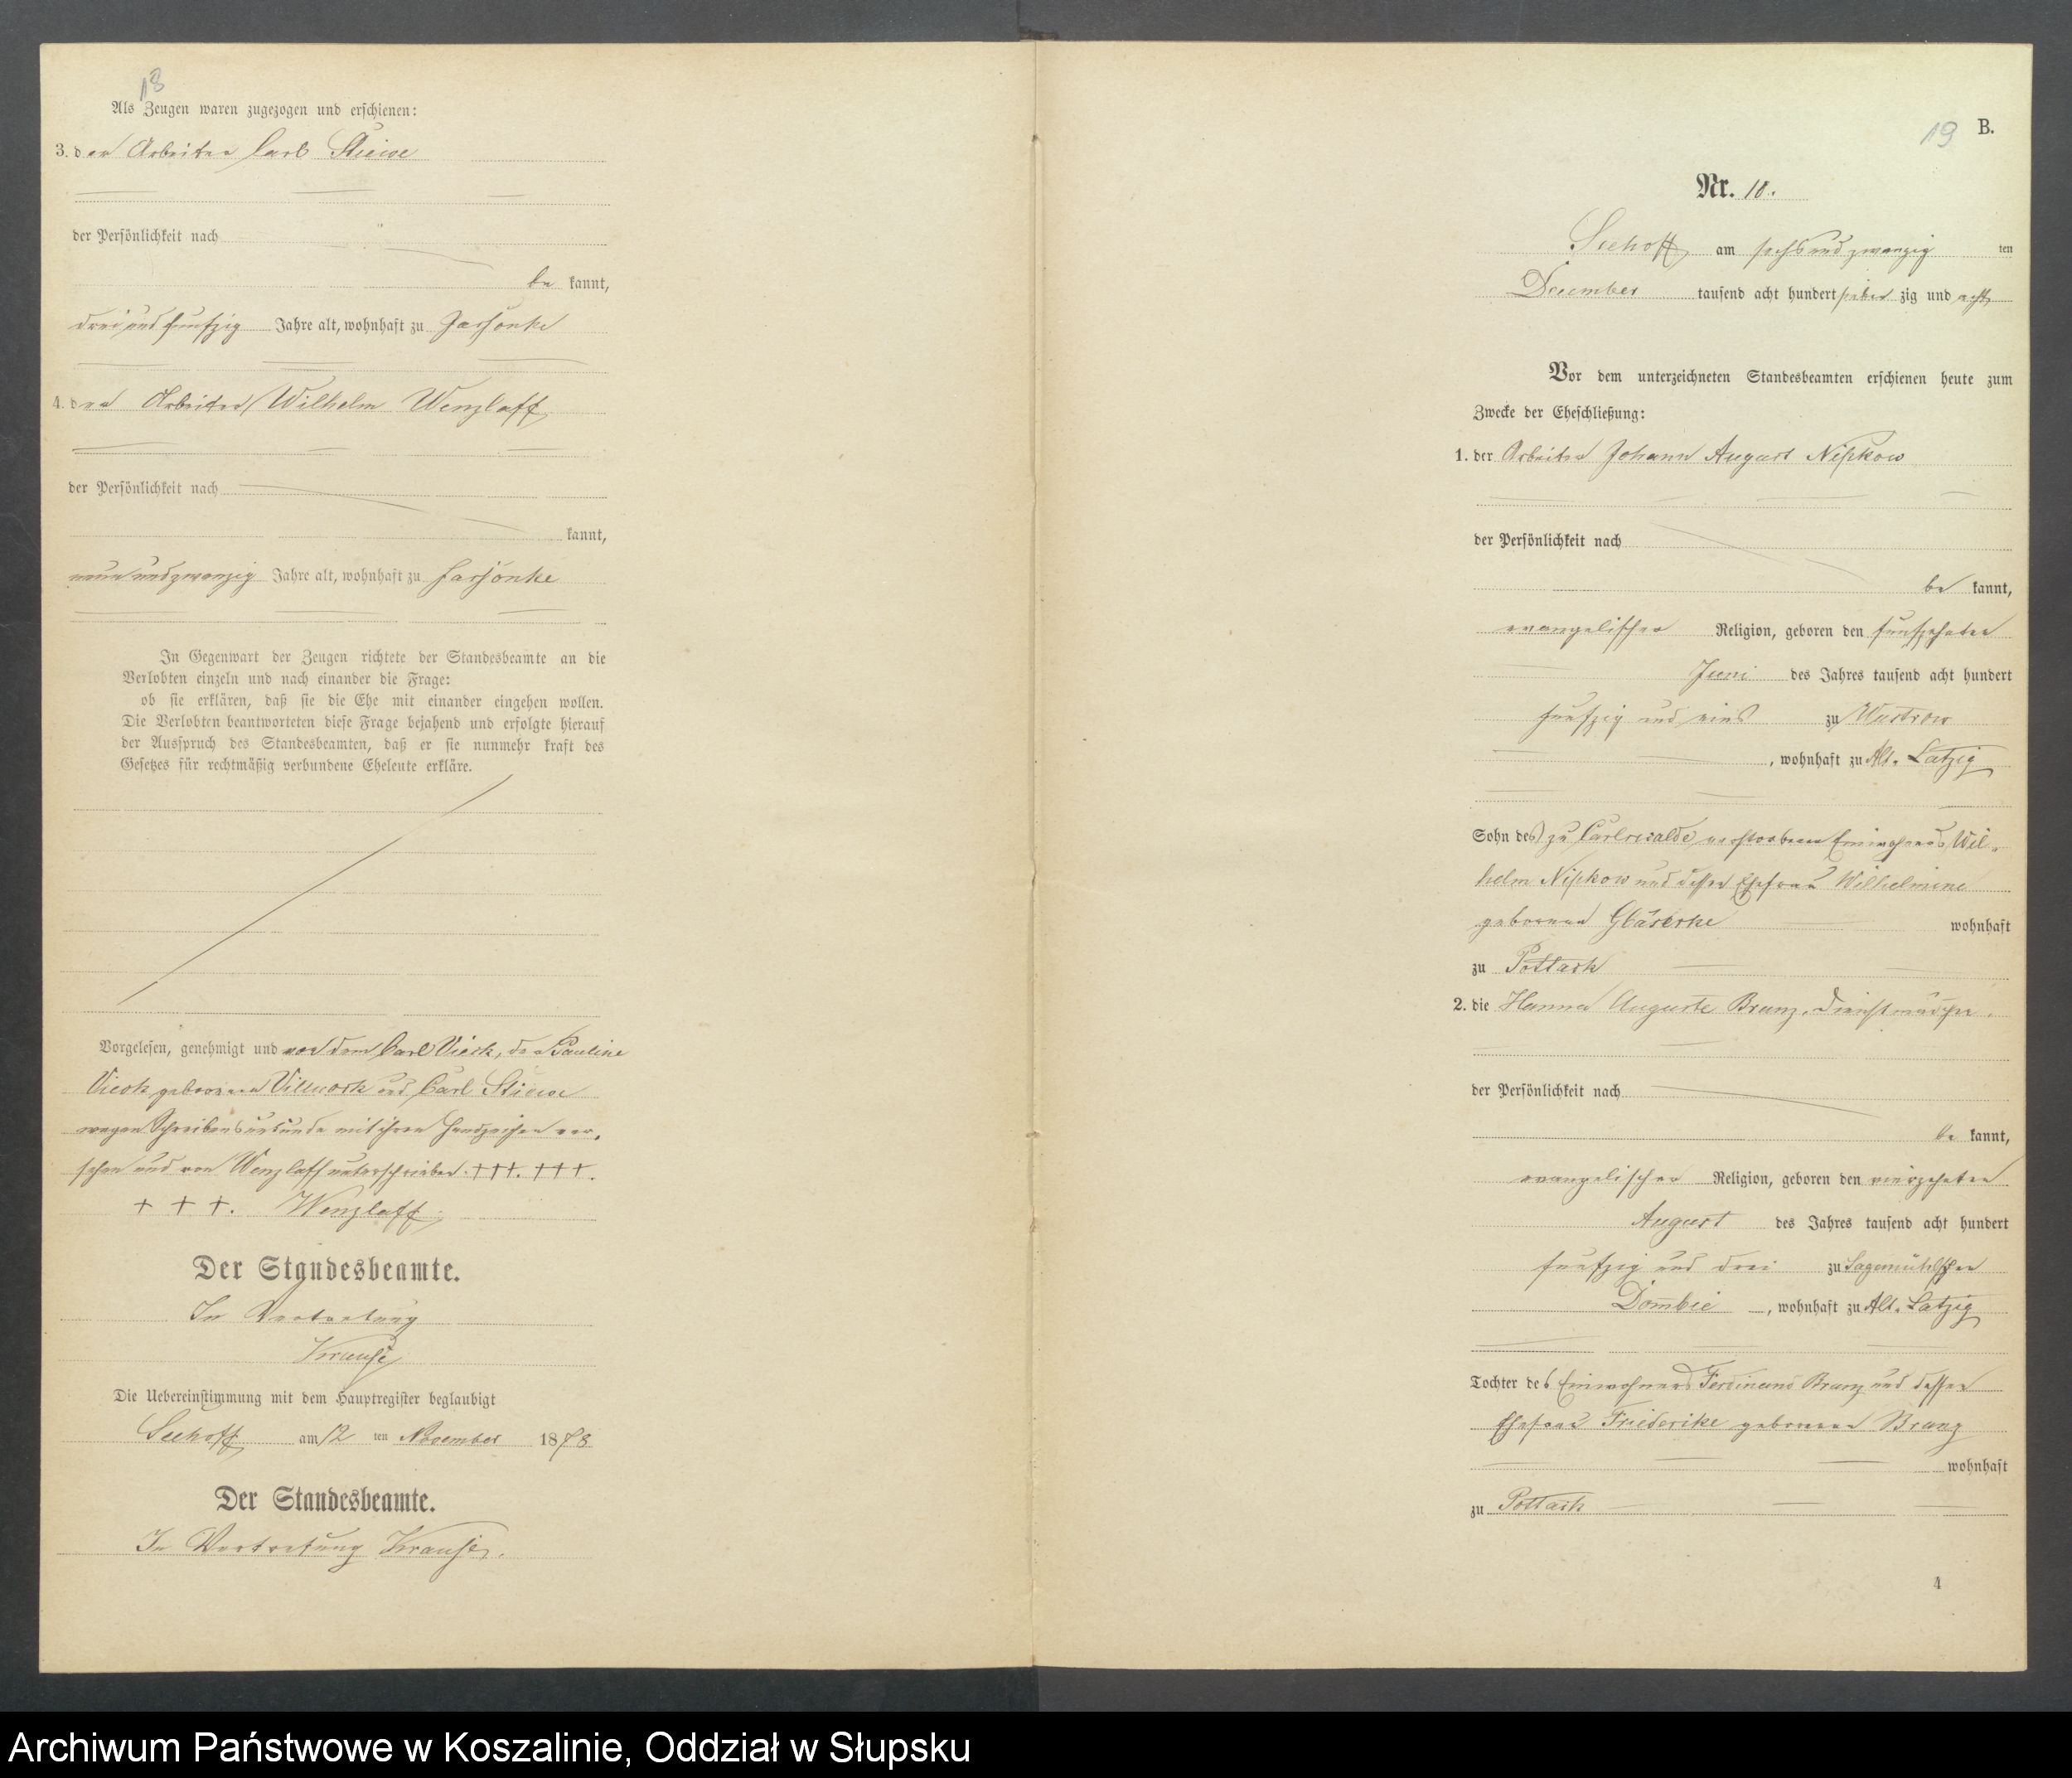 18
Als Zeugen waren zugezogen und erschienen:
3. der Arbeiter Carl Stüwe
der Persönlichkeit nach
be kannt,
drei und funfzig Jahre alt, wohnhaft zu Jassonke
4. der Arbeiter Wilhelm Wenzlaff
der Persönlichkeit nach
kannt,
neun und zwanzig Jahre alt, wohnhaft zu Jassonke
In Gegenwart der Zeugen richtete der Standesbeamte an die
Verlobten einzeln und nach einander die Frage:
ob sie erklären, daß sie die Ehe mit einander eingehen wollen.
Die Verlobten beantworteten diese Frage bejahend und erfolgte hierauf
der Ausspruch des Standesbeamten, daß er sie nunmehr kraft des
Gesetzes für rechtmäßig verbundene Eheleute erkläre.
Vorgelesen, genehmigt und von dem Carl Vieck, der Pauline
Vieck geborenen Villwock und Carl Stüwe
wegen Schreibensunkunde mit ihren Handzeichen ver-
sehen und von Wenzlaff unterschrieben. +++. +++.
+ + +. Wenzlaff.
Der Standesbeamte.
In Vertretung
Krause
Die Uebereinstimmung mit dem Hauptregister beglaubigt
Seehoff am 12 ten November 1878
Der Standesbeamte.
In Vertretung Krause.
19 B.
Nr. 10.
Seehoff am sechs und zwanzig ten
December tausend acht hundert sieben zig und acht
Vor dem unterzeichneten Standesbeamten erschienen heute zum
Zwecke der Eheschließung:
1. der Arbeiter Johann August Nipkow
der Persönlichkeit nach
be kannt,
evangelischer Religion, geboren den funfzehnten
Juni des Jahres tausend acht hundert
funfzig und eins zu Wustrow
, wohnhaft zu Alt-Latzig
Sohn des zu Carlswalde verstorbenen Einwohners Wil-
helm Nipkow und dessen Ehefrau Wilhelmine
geborenen Gläserke wohnhaft
zu Pottack
2. die Hanna Auguste Brunz, Dienstmädchen.
der Persönlichkeit nach
be kannt,
evangelischer Religion, geboren den vierzehnten
August des Jahres tausend acht hundert
funfzig und drei zu Sagemühlschen
Dombie , wohnhaft zu Alt-Latzig
Tochter des Einwohners Ferdinand Brunz und dessen
Ehefrau Friederike geborenen Brunz
wohnhaft
zu Pottack
4
Archiwum Państwowe w Koszalinie, Oddział w Słupsku